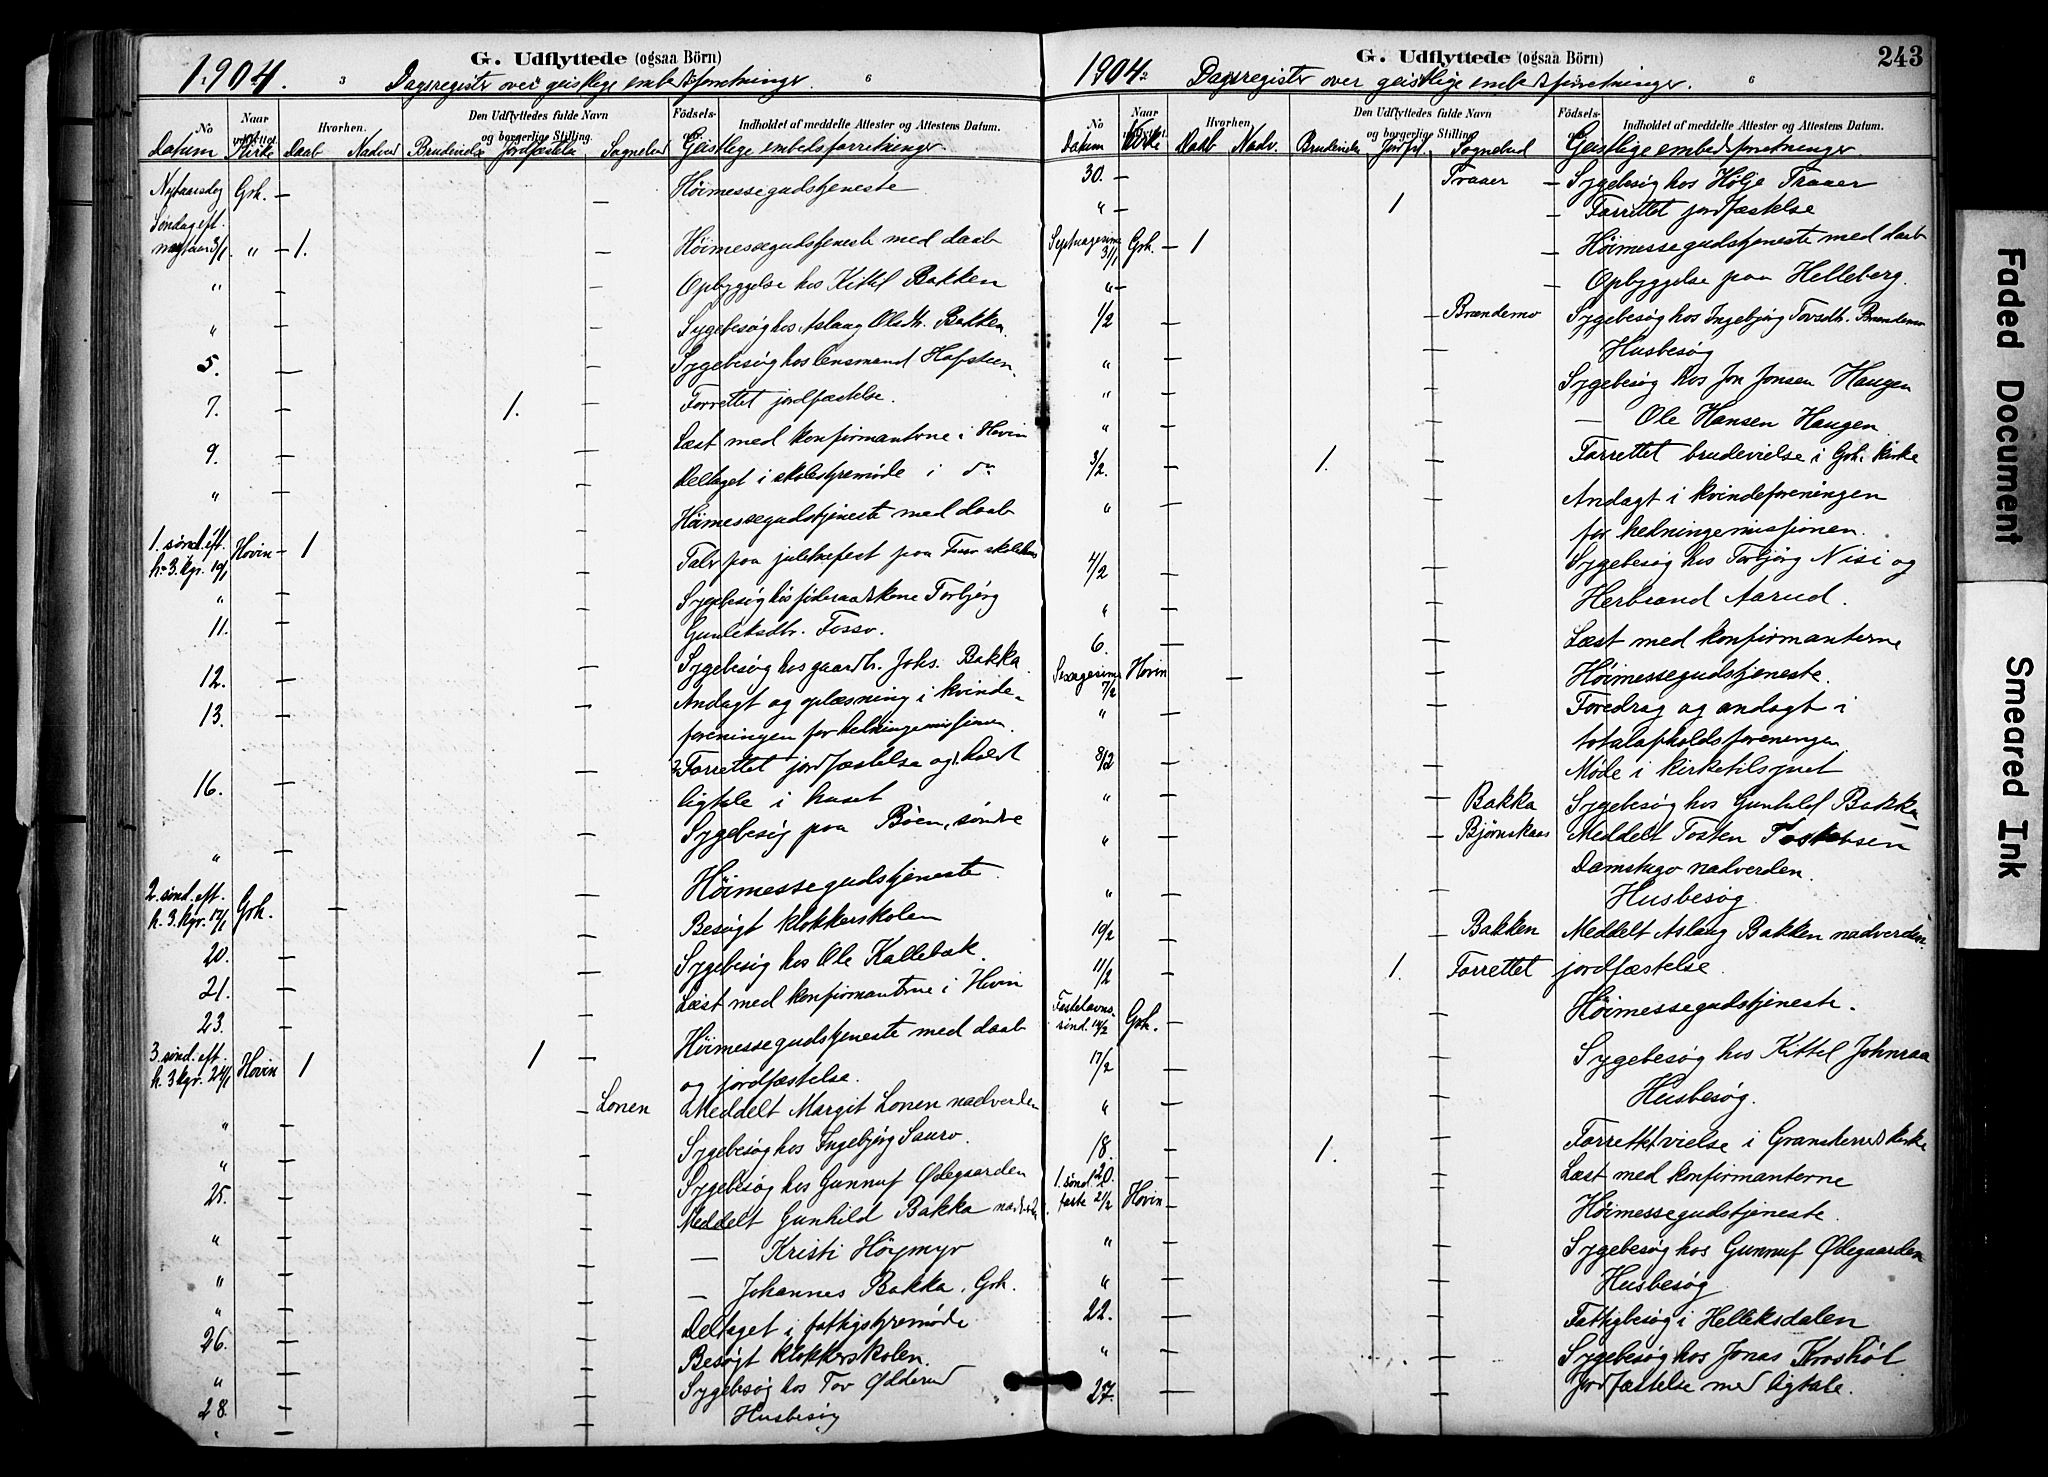 1904.
G. Udflyttede (ogsaa Börn)
3
6
Dagsregister over geistlige embedsforretninger.
No
Naar
Hvorhen.
Den Udflyttedes fulde Navn
og borgerlige Stilling.
Födsels-
Indholdet af meddelte Attester og Attestens Datum.
Datum Kirke Daab Nadverd Brudevielse Jordfæstelse Sognebud Geistlige embedsforretninger
Nytaarsdag Grh. — Höimessegudstjeneste
Søndag eft.
nytaar 3/1 " 1. Höimessegudstjeneste med daab
" Opbyggelse hos Kittel Bakken
" Sygebesög hos Aslaug Olsdtr. Bakken
5. Sygebesög hos lensmand Hafsteen.
7. 1. Forrettet jordfæstelse.
9. Læst med konfirmanterne i Hovin
" Deltaget i skolestyremöde i do
1. sönd. eft.
h. 3. kgr. 10/1 Hovin 1 Höimessegudstjeneste med daab
" Tale paa juletrefest paa Fosso skolehus
11. Sygebesög hos föderaadskone Torbjörg
Gunleksdtr. Fosso.
12. Sygebesög hos gaardbr. Johs. Bakka
13. Andagt og oplæsning i kvinde-
foreningen for hedningemissionen
16. Forrettet jordfæstelse og holdt
ligtale i huset
" Sygebesög paa Böen, söndre
2. sönd. eft.
h. 3. kgr. 17/1 Grh. — Höimessegudstjeneste
20. Besögt klokkerskolen
21. Sygebesög hos Ole Kallebæk.
23. Læst med konfirmanterne i Hovin
3. sönd. eft.
h. 3 kgr. 24/1 Hovin 1 1 Höimessegudstjeneste med daab
og jordfæstelse.
" Lonen Meddelt Margit Lonen nadverden
" Sygebesög hos Ingebjörg Sauro.
25. Sygebesög hos Gunnuf Ødegaarden
" Meddelt Gunhild Bakka nadverden
" — Kristi Höymyr
" — Johannes Bakka, Grh.
26. Deltaget i fattigstyremöde
" Besögt klokkerskolen.
28. Sygebesög hos Tov Ödderud
" Husbesög
1904.
G. Udflyttede (ogsaa Börn)
243
2
6
Dagsregister over geistlige embedsforretninger.
No
Naar
Hvorhen.
Den Udflyttedes fulde Navn
og borgerlige Stilling.
Födsels-
Indholdet af meddelte Attester og Attestens Datum.
Datum Kirke Daab Nadv. Brudevielse Jordf. Sognebud Geistlige embedsforretninger.
30. — Traaer — Sygebesög hos Hølje Traaer
" — 1 — Forrettet jordfæstelse
Septuagesima
31/1 Grh. — 1 Höimessegudstjeneste med daab
" — Opbyggelse paa Helleberg.
1/2 — Brændemo Sygebesög hos Ingebjörg Torsdtr. Brændemo
" Husbesög
" Sygebesög hos Jon Jonsen Haugen
" — Ole Hansen Haugen
3/2. 1. Forrettet brudevielse i Grh. kirke
" Andagt i kvindeforeningen
for hedningemissionen.
4/2 Sygebesög hos Torbjörg Nisi og
" Herbrand Aarud.
6. Læst med konfirmanterne
Sexagesima
7/2 Hovin Höimessegudstjeneste.
" Foredrag og andagt i
totalafholdsforeningen
8/2 Møde i kirketilsynet
" Bakka Sygebesög hos Gunhild Bakka
" Bjørnskaas Meddelt Tosten Tostensen
Damstugo nadverden.
" Husbesøg
10/2 Bakken Meddelt Aslaug Bakken nadverden.
11/2 1. Forrettet jordfæstelse.
Fastelavns-
sönd. 14/2 Grh. Höimessegudstjeneste.
17/2 Sygebesög hos Kittel Johnraa
" Husbesög.
18. 1. Forrettet vielse i Gransherred kirke
20. Læst med konfirmanterne
1. sönd. i
faste 21/2 Hovin Höimessegudstjeneste.
" Sygebesög hos Gunnuf Ødegaarden
" Husbesög
22. Fattigbesög i Helleksdalen
" Sygebesög hos Jonas Kroshöl
27. Jordfæstelse med ligtale.
Faded Document
Smeared Ink